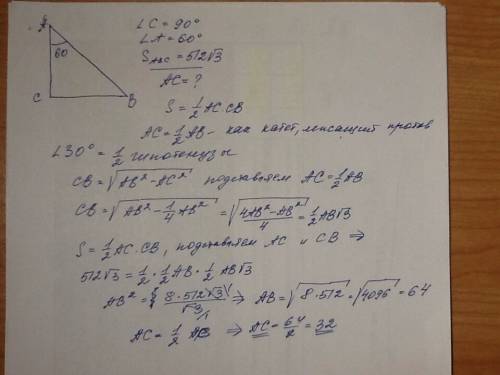 A
60
C
B
∠C = 90°
∠A = 60°
S_ABC = 512√3
AC = ?
S = 1/2 AC·CB
AC = 1/2 AB - как катет, лежащий против
∠30° = 1/2 гипотенузы
CB = √(AB² - AC²) подставляем AC = 1/2 AB
CB = √(AB² - 1/4 AB²) = √((4AB² - AB²)/4) = 1/2 AB√3
S = 1/2 AC·CB, подставляем AC и CB ⇒
512√3 = 1/2 · 1/2 AB · 1/2 AB√3
AB² = 8·512√3/√3 ⇒ AB = √(8·512) = √4096 = 64
AC = 1/2 AB ⇒ AC = 64/2 = 32